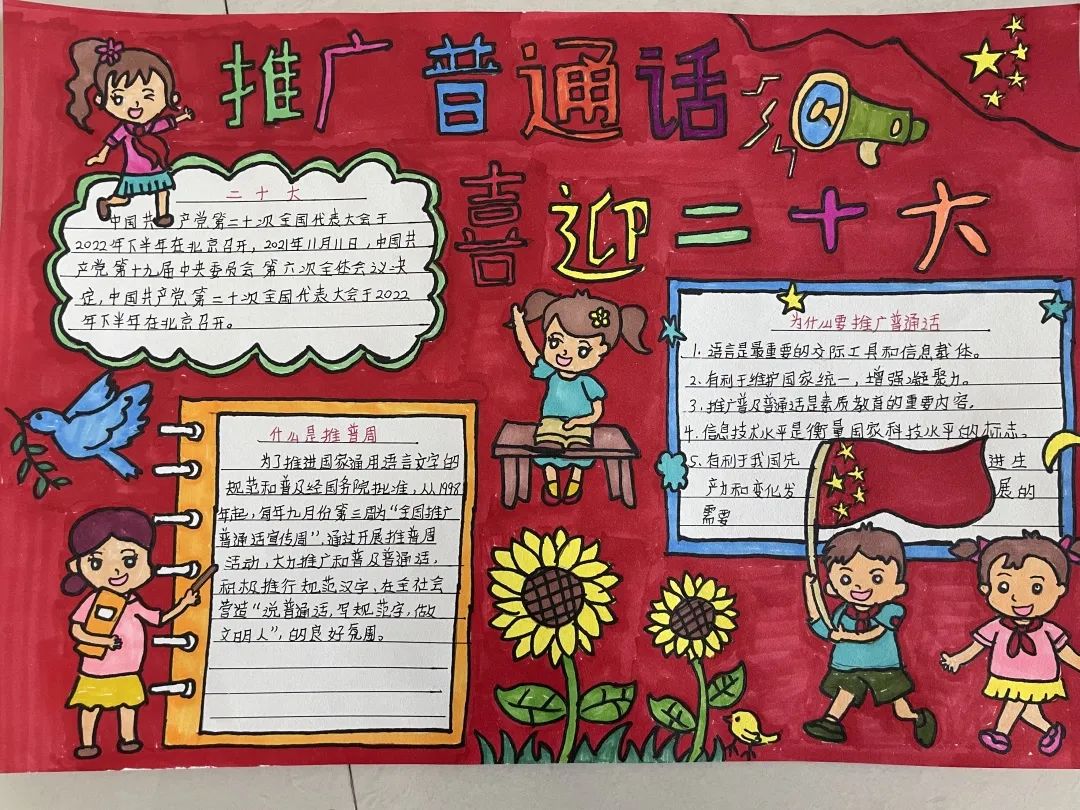 推广普通话
喜迎二十大
二十大
中国共产党第二十次全国代表大会于
2022年下半年在北京召开，2021年11月11日，中国共
产党第十九届中央委员会第六次全体会议决
定，中国共产党第二十次全国代表大会于2022
年下半年在北京召开。
什么是推普周
为了推进国家通用语言文字的
规范和普及经国务院批准，从1998
年起，每年九月份第三周为“全国推广
普通话宣传周”，通过开展推普周
活动，大力推广和普及普通话，
积极推行规范汉字，在全社会
营造“说普通话，写规范字，做
文明人”，的良好氛围。
为什么要推广普通话
1.语言是最重要的交际工具和信息载体。
2.有利于维护国家统一，增强凝聚力。
3.推广普及普通话是素质教育的重要内容。
4.信息技术水平是衡量国家科技水平的标志。
5.有利于我国先 进生
产力和变化发 展的
需要